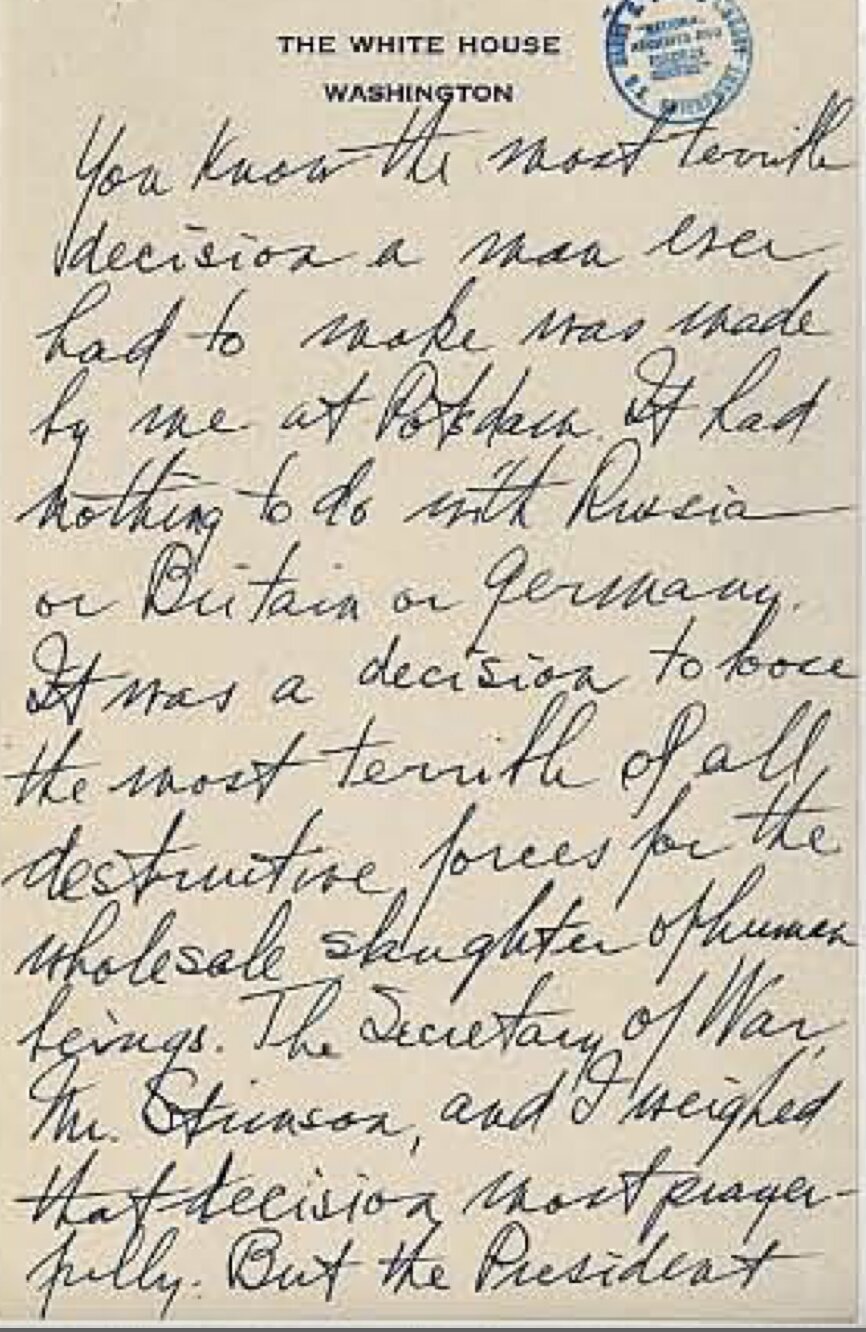 THE WHITE HOUSE
WASHINGTON
You know the most terrible
decision a man ever
had to make was made
by me at Potsdam. It had
nothing to do with Russia
or Britain or Germany.
It was a decision to loose
the most terrible of all
destructive forces for the
wholesale slaughter of human
beings. The Secretary of War,
Mr. Stimson, and I weighed
that decision most prayer-
fully. But the President